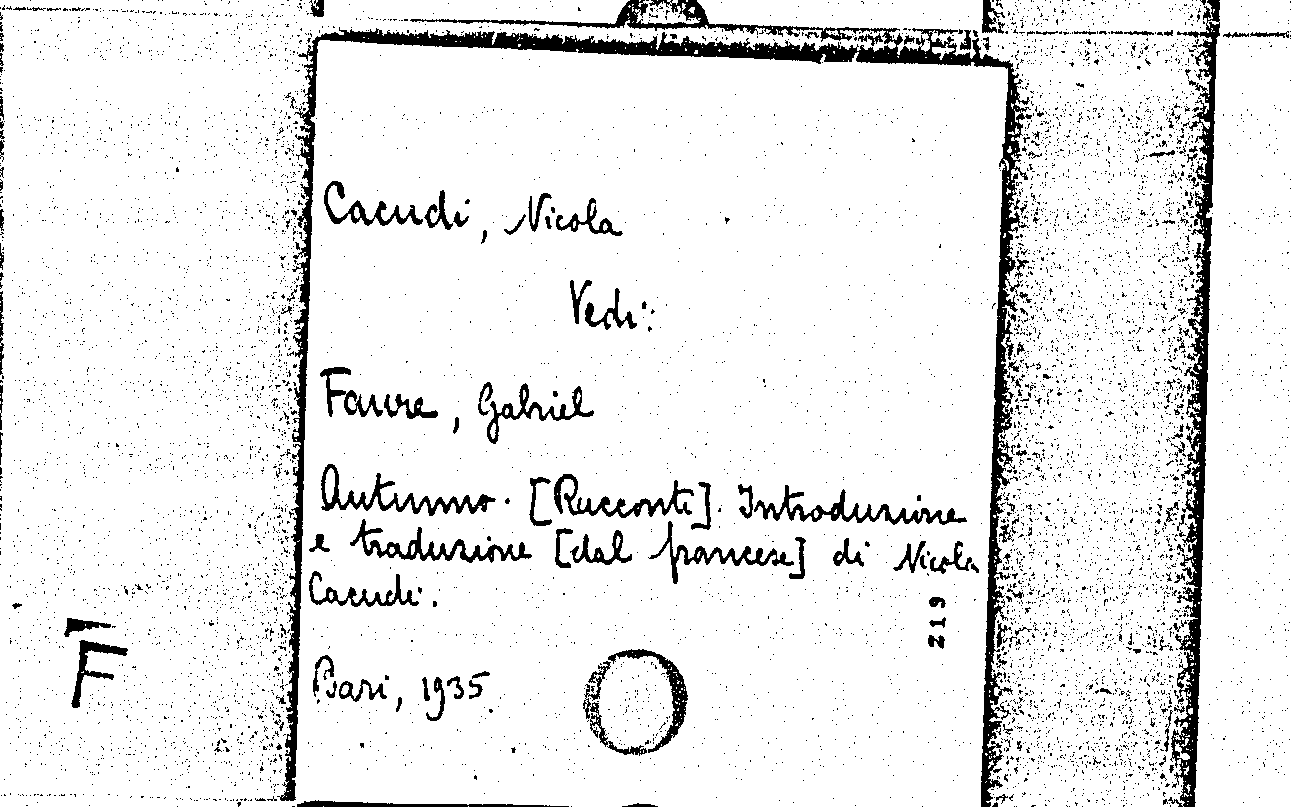 Cacudi, Nicola
Vedi:
Faure, Gabriel
Autunno. [Racconti]. Introduzione
e traduzione [dal francese] di Nicola
Cacudi.
Bari, 1935.
219
F